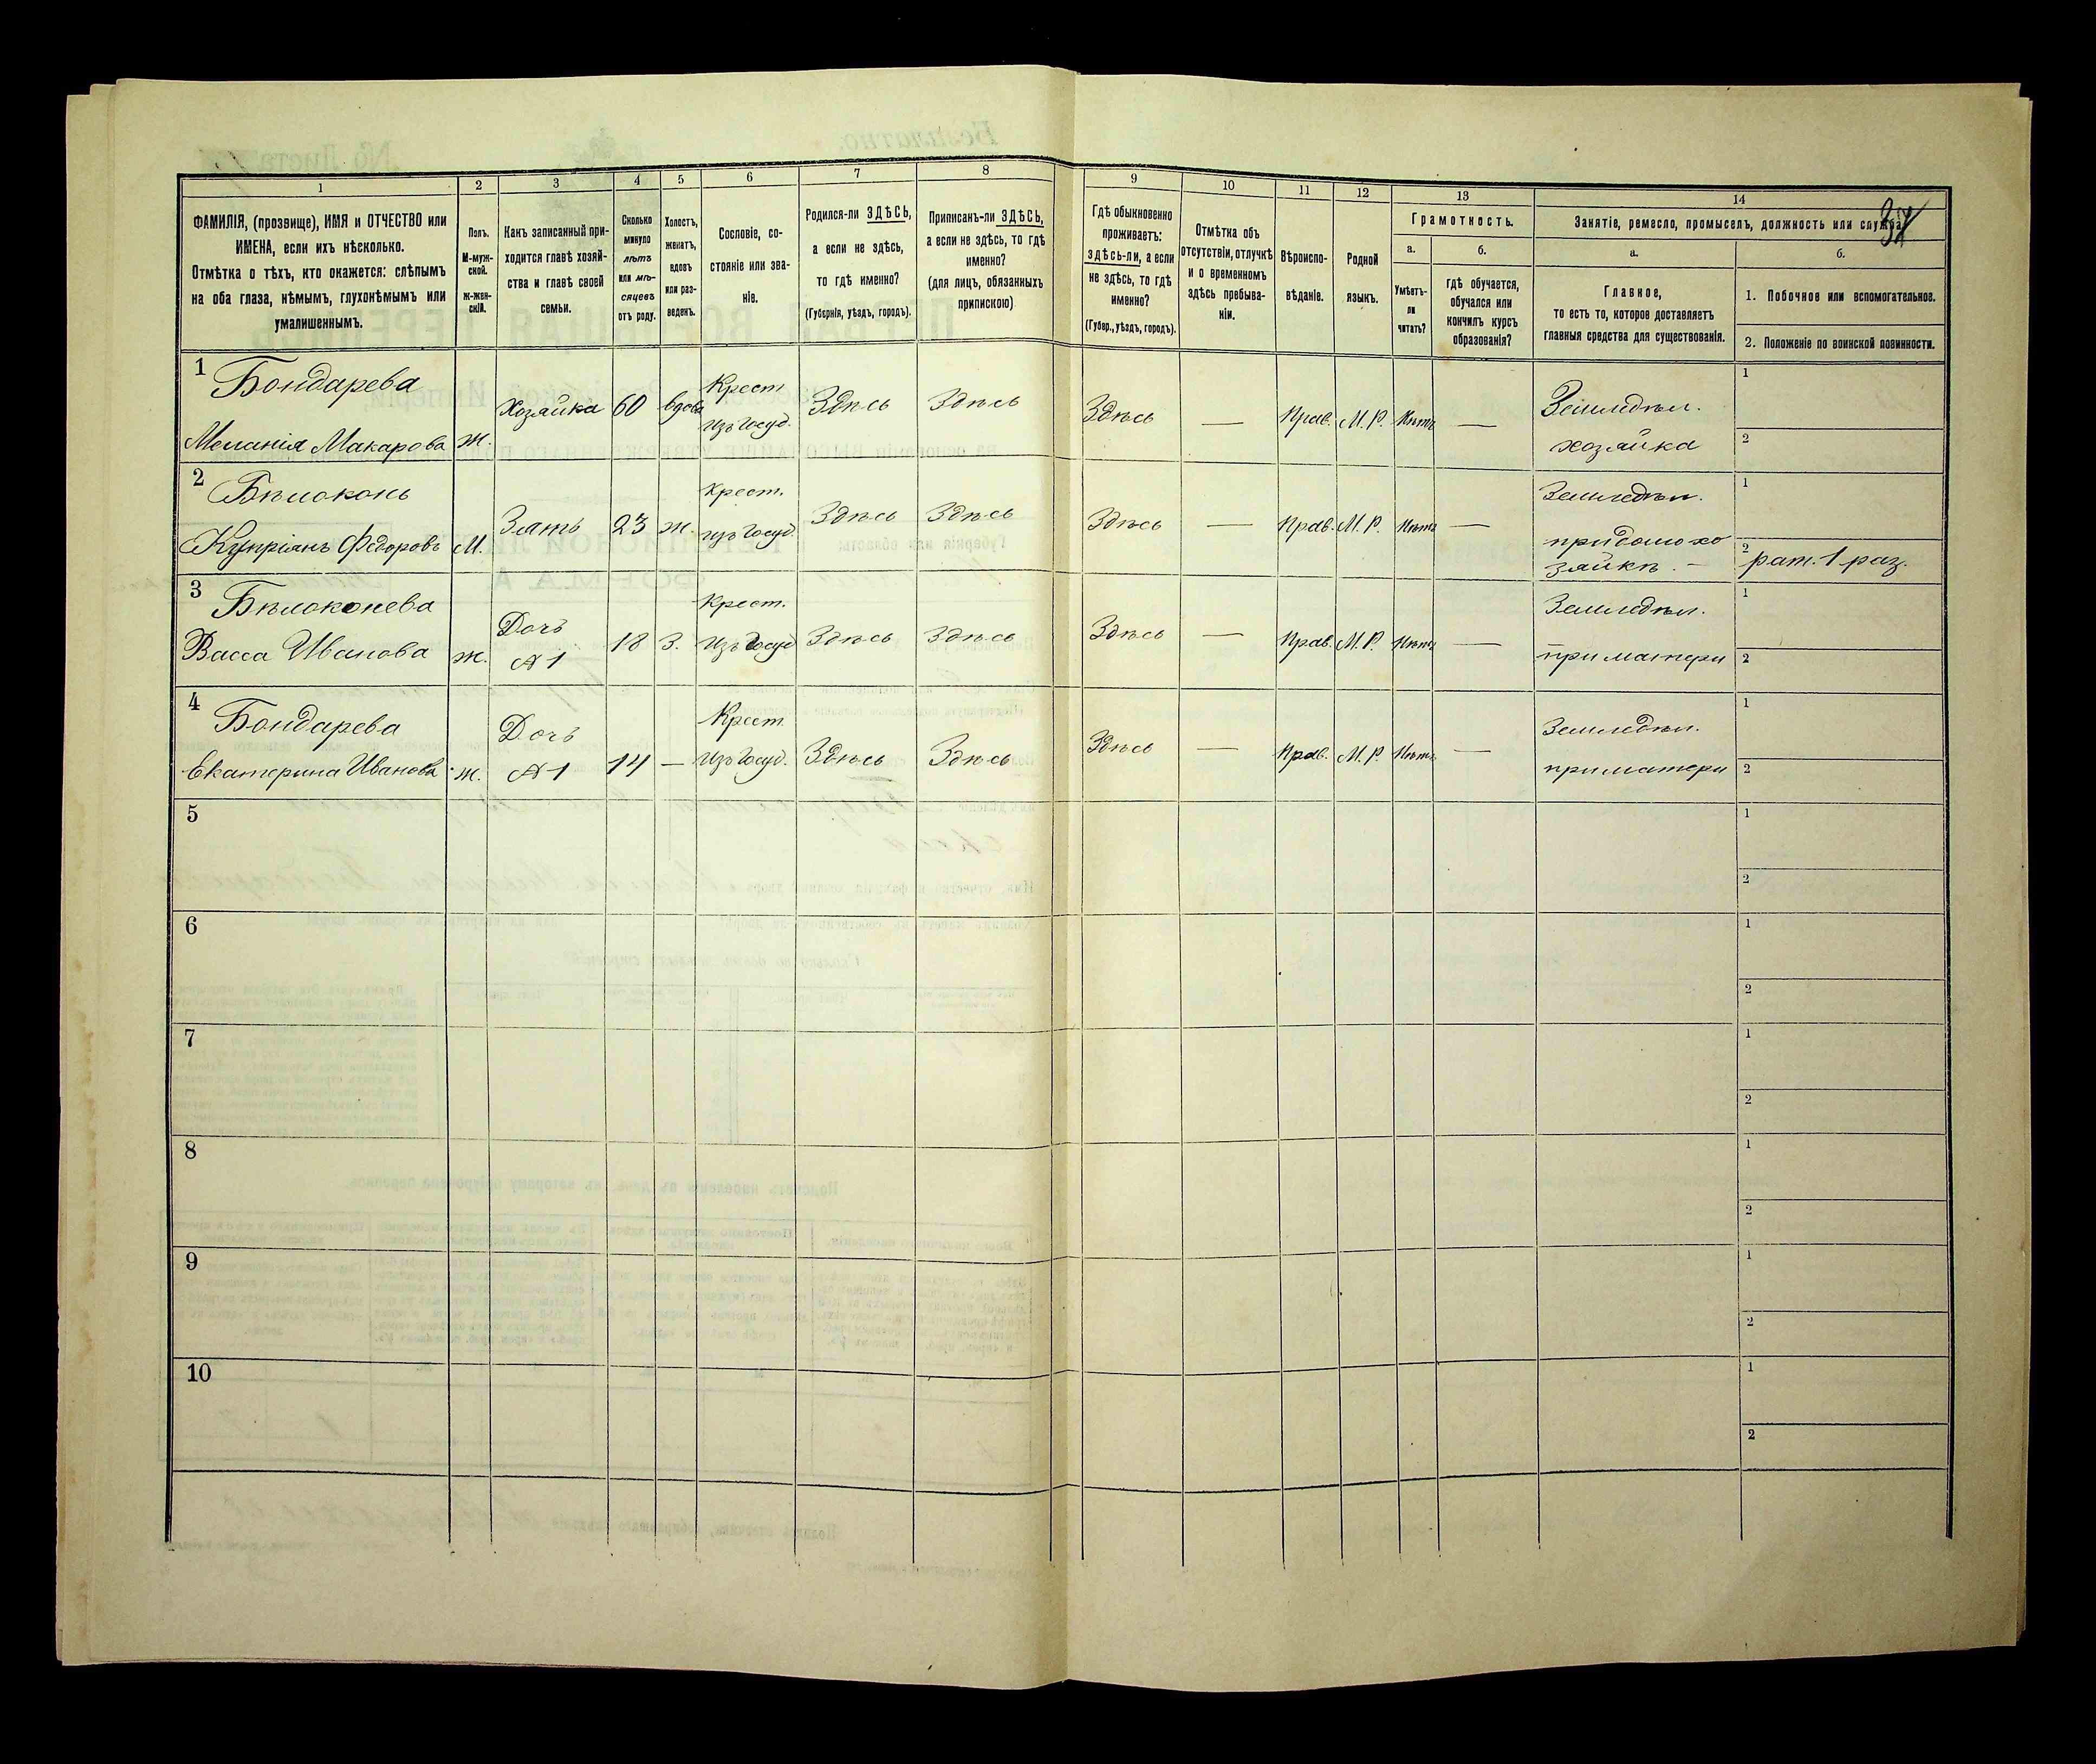 37
1 2 3 4 5 6 7 8 9 10 11 12 13 14
ФАМИЛІЯ, (прозвище), ИМЯ и ОТЧЕСТВО или ИМЕНА, если ихъ нѣсколько.
Отмѣтка о тѣхъ, кто окажется: слѣпымъ на оба глаза, нѣмымъ, глухонѣмымъ или умалишеннымъ.
Полъ. М-мужской. Ж-женскій.
Какъ записанный приходится главѣ хозяйства и главѣ своей семьи.
Сколько минуло лѣтъ или мѣсяцевъ отъ роду.
Холостъ, женатъ, вдовъ или разведенъ.
Сословіе, состояніе или званіе.
Родился-ли ЗДѢСЬ, а если не здѣсь, то гдѣ именно? (Губернія, уѣздъ, городъ).
Приписанъ-ли ЗДѢСЬ, а если не здѣсь, то гдѣ именно? (для лицъ, обязанныхъ припискою)
Гдѣ обыкновенно проживаетъ: ЗДѢСЬ-ЛИ, а если не здѣсь, то гдѣ именно? (Губер., уѣздъ, городъ).
Отмѣтка объ отсутствіи, отлучкѣ и о временномъ здѣсь пребываніи.
Вѣроисповѣданіе.
Родной языкъ.
Грамотность.
а. Умѣетъ-ли читать?
б. гдѣ обучается, обучался или кончилъ курсъ образованія?
Занятіе, ремесло, промыселъ, должность или служба.
а. Главное, то есть то, которое доставляетъ главныя средства для существованія.
б.
1. Побочное или вспомогательное.
2. Положеніе по воинской повинности.
1 Бондарева
Меланія Макарова ж. Хозяйка 60 вдова Крест. изъ госуд. Здѣсь Здѣсь Здѣсь — Прав. М. Р. Нѣтъ — Земледѣл. хозяйка
1
2
2 Бѣлоконь
Купріянъ Федоровъ М. Зять 23 ж. Крест. изъ госуд. Здѣсь Здѣсь Здѣсь — Прав. М. Р. Нѣтъ — Земледѣл. при домохозяйкѣ. —
1
2 рат. 1 раз.
3 Бѣлоконева
Васса Иванова ж. Дочь №1 18 З. Крест. изъ госуд Здѣсь Здѣсь Здѣсь — Прав. М. Р. Нѣтъ — Земледѣл. при матери
1
2
4 Бондарева
Екатерина Иванова ж. Дочь №1 14 — Крест. изъ госуд. Здѣсь Здѣсь Здѣсь — Прав. М. Р. Нѣтъ — Земледѣл. при матери
1
2
5
1
2
6
1
2
7
1
2
8
1
2
9
1
2
10
1
2